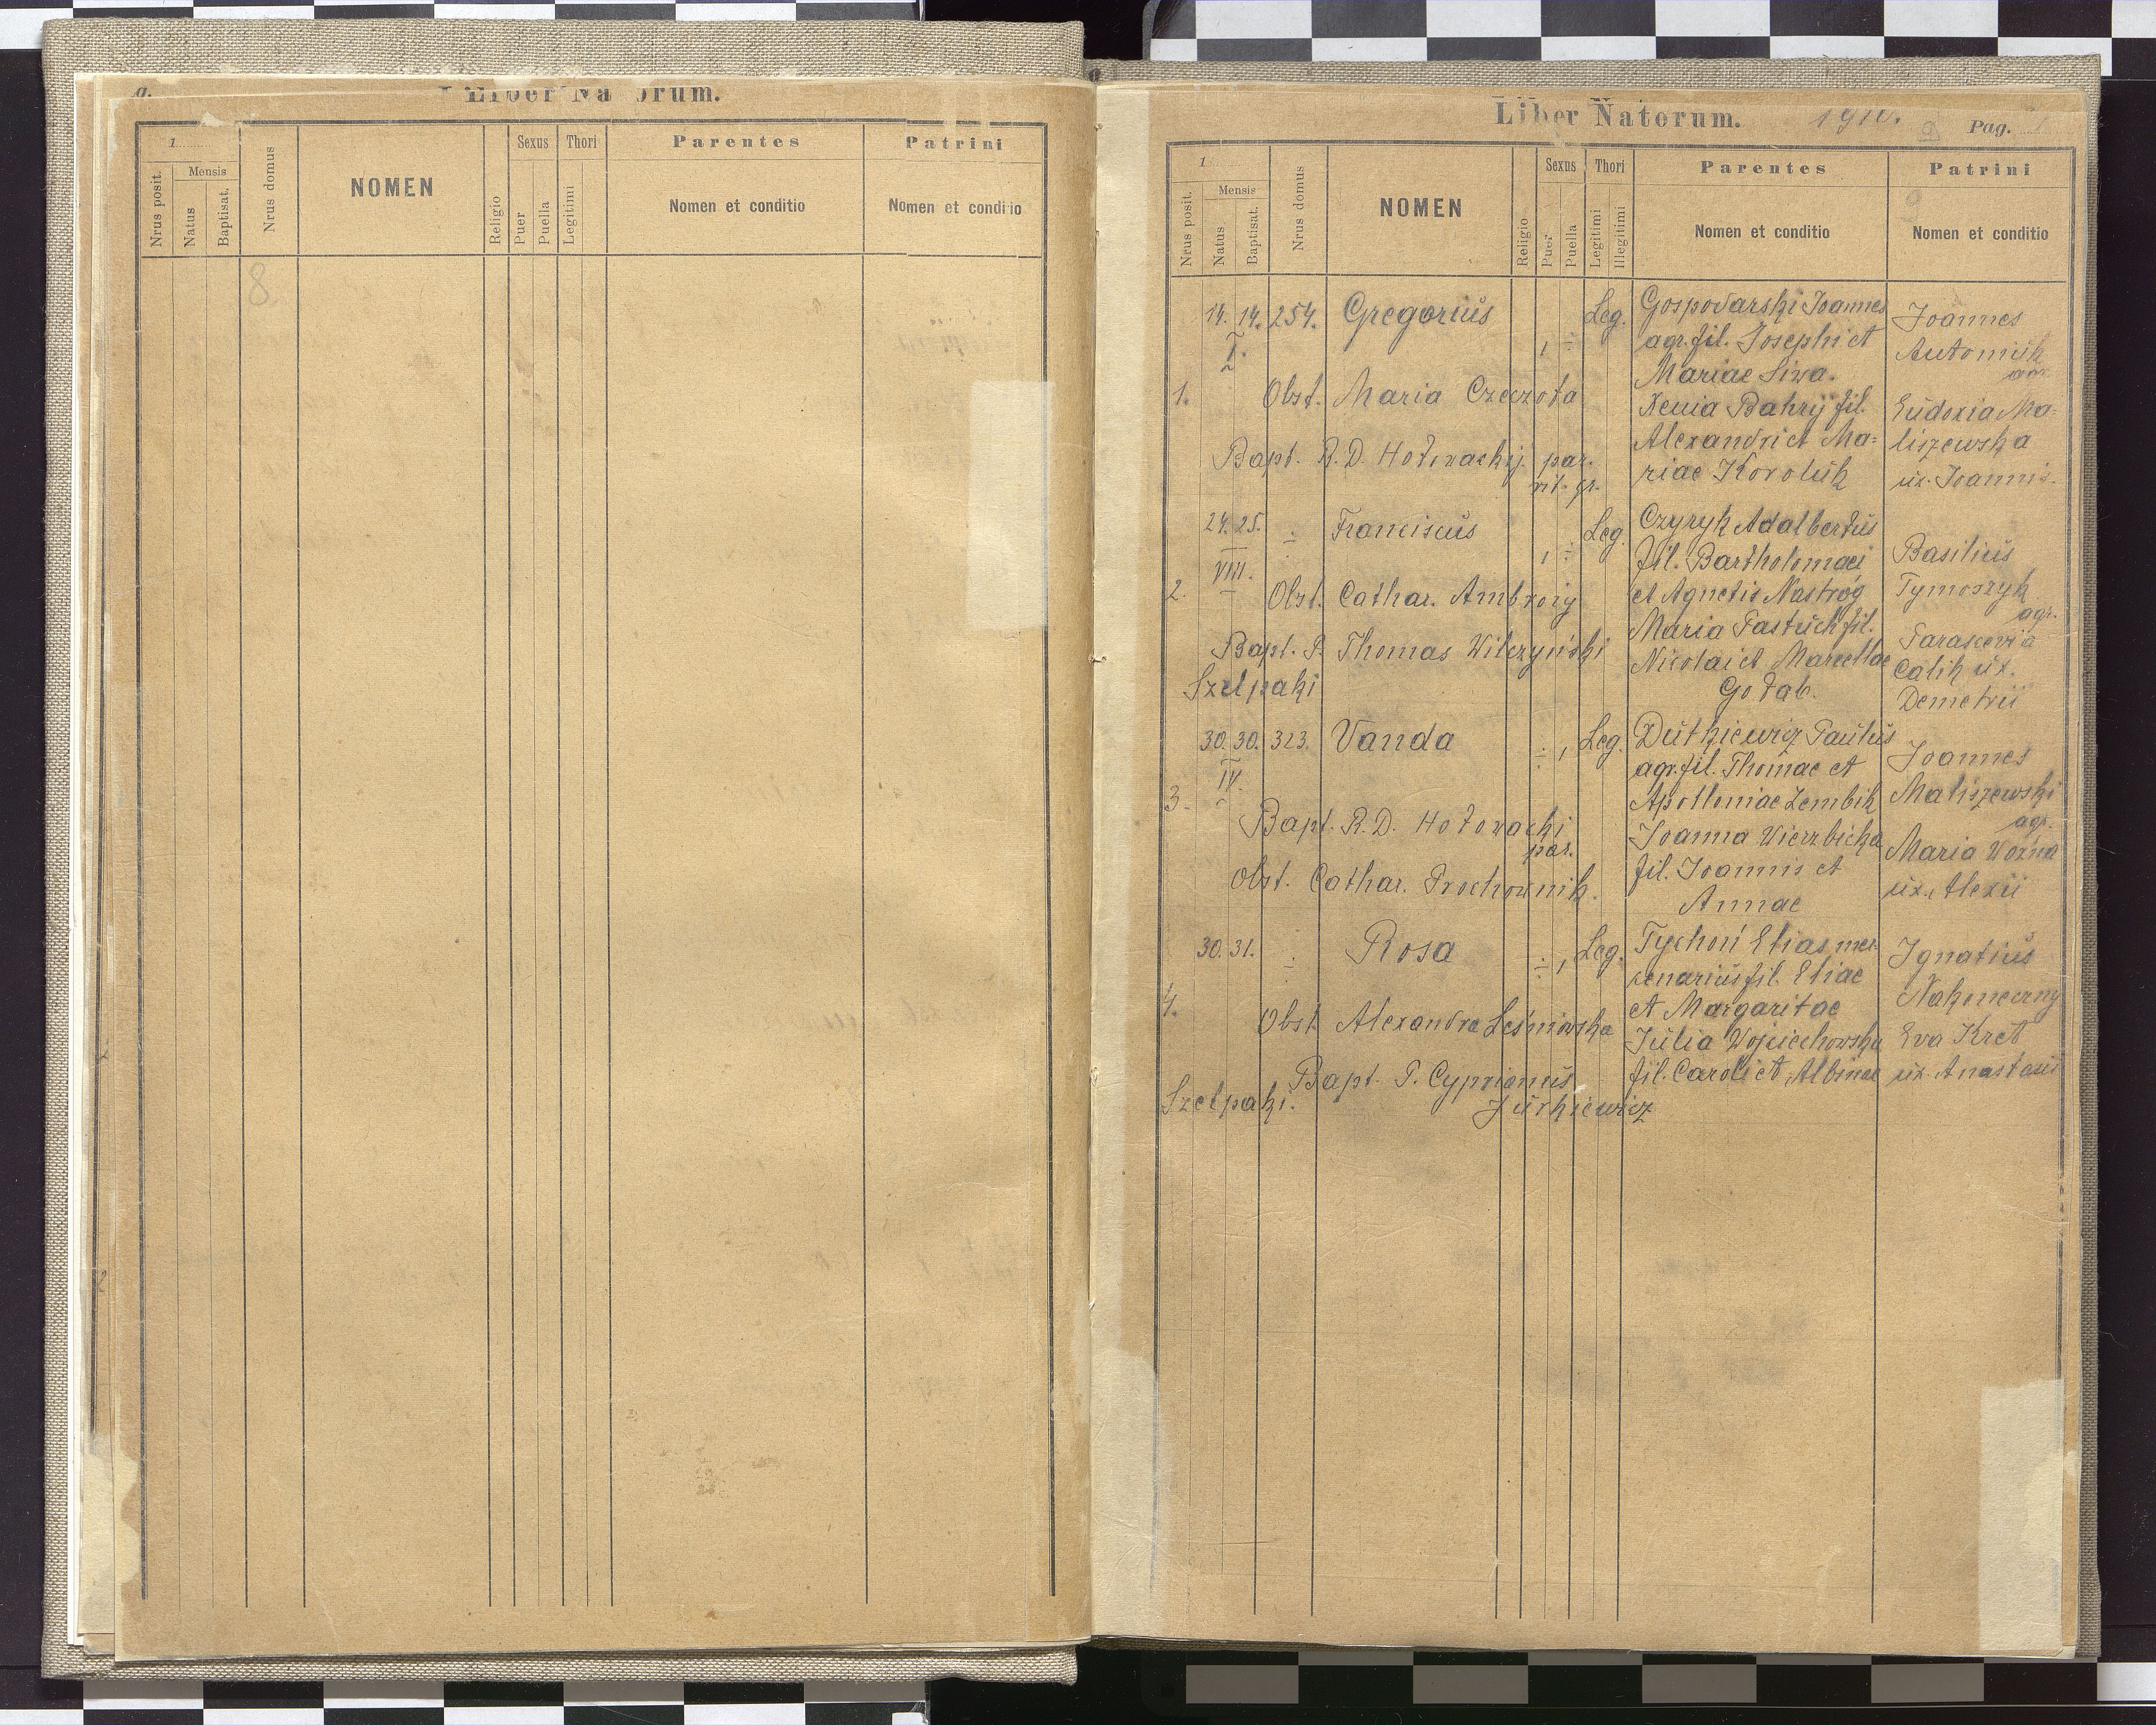 Liber Natorum.
1.
Mensis
Nrus posit.
Natus
Baptisat.
Nrus domus
NOMEN
Religio
Sexus
Puer
Puella
Thori
Legitimi
Parentes
Nomen et conditio
Patrini
Nomen et conditio
8
Liber Natorum. 1910. 9 Pag.
1
Mensis
Nrus posit.
Natus
Baptisat.
Nrus domus
NOMEN
Religio
Sexus
Puer
Puella
Thori
Legitimi
Illegitimi
Parentes
Nomen et conditio
Patrini
Nomen et conditio
1.
14. 14. 254. Gregorius Leg.
I.
Obst. Maria Czeczota
Bapt. R. D. Hołowackij par.
rit. gr.
Gospodarski Joannes
agr. fil. Josephi et
Mariae Siwa.
Xenia Bahrij fil.
Alexandri et Ma=
riae Koroluk
Joannes
Antoniuk
agr.
Eudoxia Ma=
liszewska
ux. Joannis.
2.
24. 25. Franciscus Leg.
VIII.
Obst. Cathar. Ambroży
Bapt. P. Thomas Wilczyński
Szelpaki
Czyryk Adalbertus
fil. Bartholomaei
et Agnetis Nastróg
Maria Pastuch fil.
Nicolai et Marcellae
Gołab.
Basilius
Tymoszyk
agr.
Parascevia
Calik ux.
Demetrii
3.
30. 30. 323. Vanda Leg.
IV.
Bapt. R. D. Hołowacki
par.
Obst. Cathar. Prochownik.
Dutkiewicz Paulus
agr. fil. Thomae et
Apolloniae Zembik
Joanna Wierzbicka
fil. Joannis et
Annae
Joannes
Maliszewski
agr.
Maria Woźna
ux. Alexii
4.
30. 31. Rosa Leg.
Obst. Alexandra Leśniowska
Bapt. P. Cyprianus
Szelpaki. Jurkiewicz
Tychoń Elias mer-
cenarius fil. Eliae
et Margaritae
Julia Wojciechowska
fil. Caroli et Albinae
Ignatius
Nakoneczny
Eva Kret
ux. Anastasii